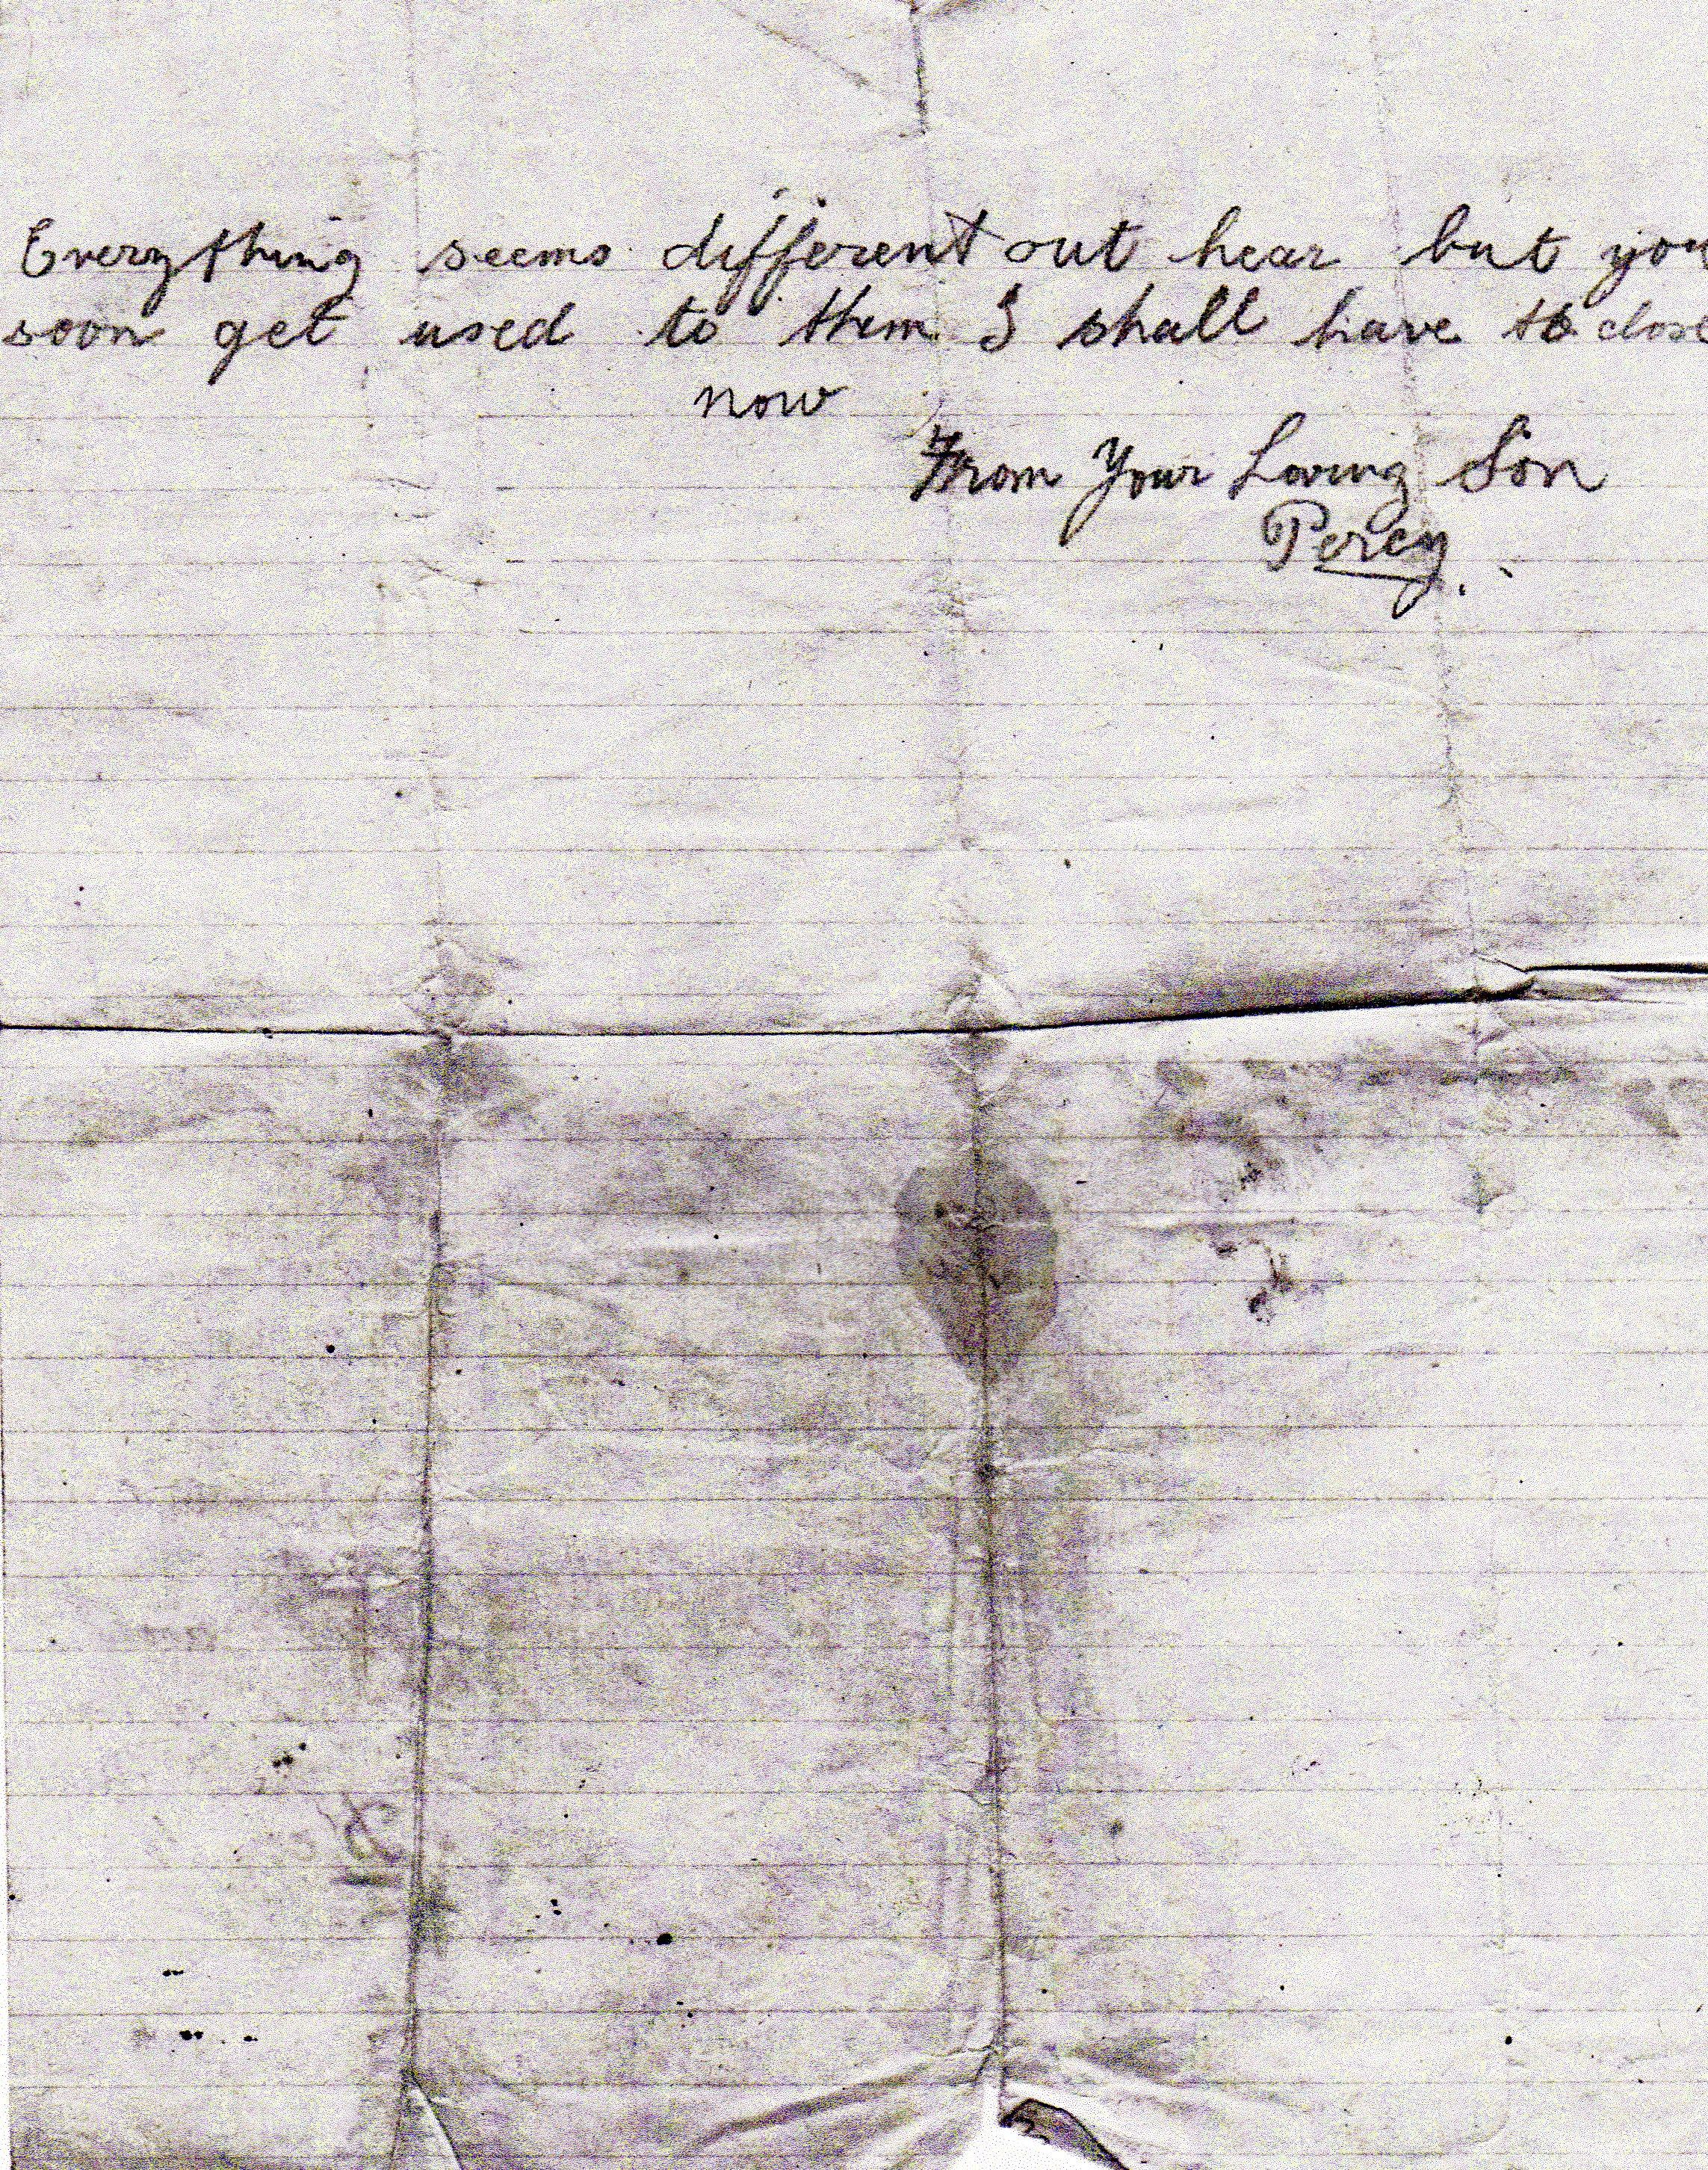 Everything seems different out hear but you
soon get used to them I shall have to close
now
From Your Loving Son
Percy.